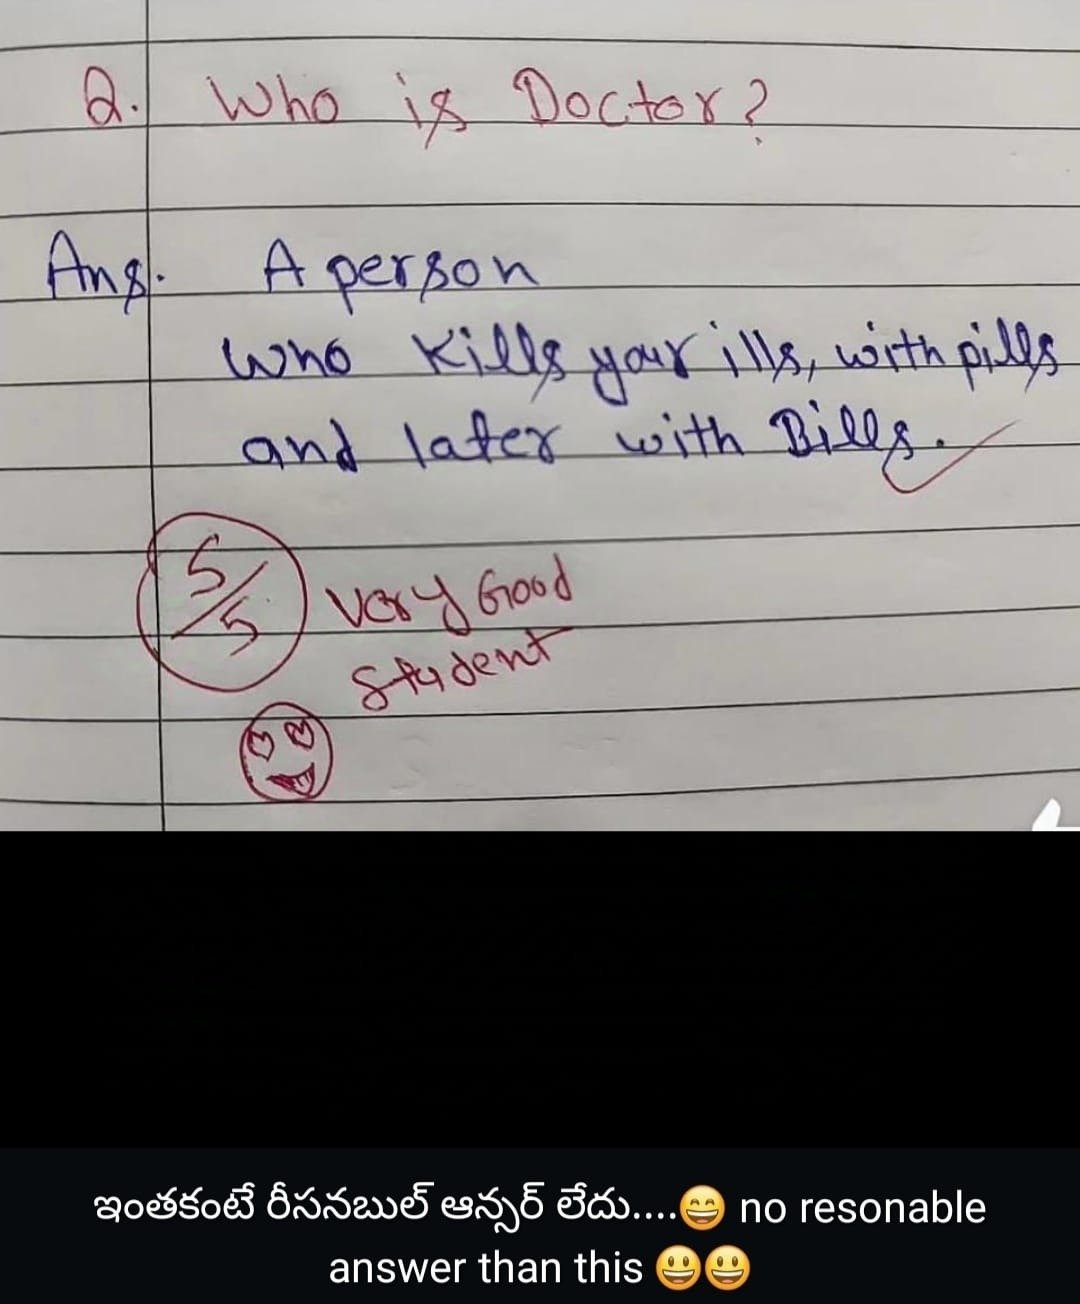 Q. Who is Doctor?
Ans. A person
who kills your ills, with pills
and later with Bills.
5/5 Very Good
Student
ఇంతకంటే రీసనబుల్ ఆన్సర్ లేదు....😄 no resonable
answer than this 😃😃